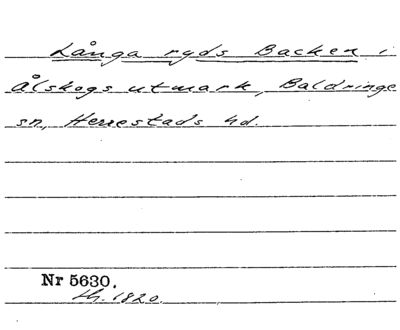 Långa ryds Backen i
Ålskogs utmark, Baldringe
sn, Herrestads hd.
Nr 5630.
th. 1820.